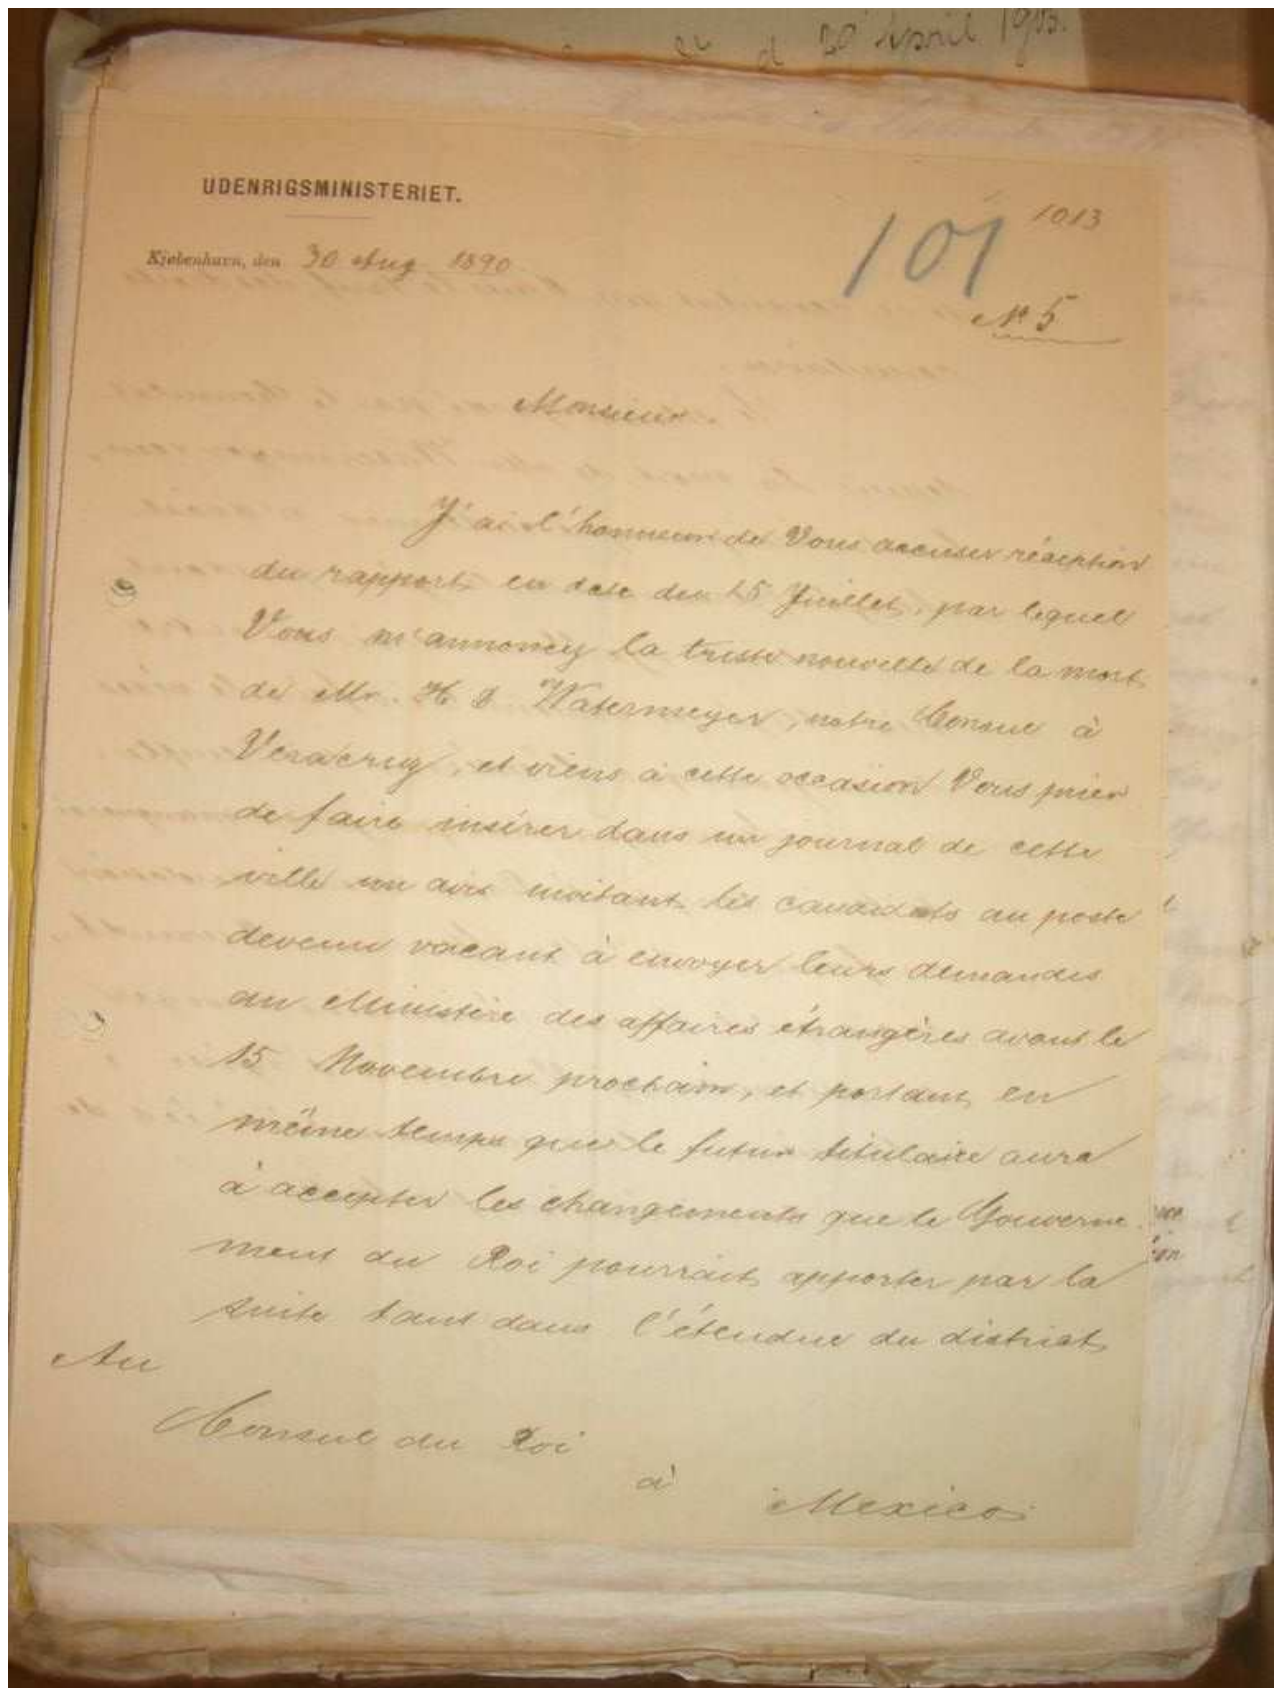 20 April 1903.
UDENRIGSMINISTERIET.
1013
101
Kjøbenhavn, den 30 Aug 1890
No 5
Monsieur.
J'ai l'honneur de Vous accuser réception
du rapport en date du 15 Juillet, par lequel
Vous m'annoncez la triste nouvelle de la mort
de Mr. H D Watermeyer, notre Consul à
Veracruz, et viens à cette occasion Vous prier
de faire insérer dans un journal de cette
ville un avis invitant les candidats au poste
devenu vacant à envoyer leurs demandes
au Ministère des affaires étrangères avant le
15 Novembre prochain, et portant en
même temps que le futur titulaire aura
à accepter les changements que le Gouverne-
ment du Roi pourrait apporter par la
suite tant dans l'étendue du district
Au
Consul du Roi
à
Mexico